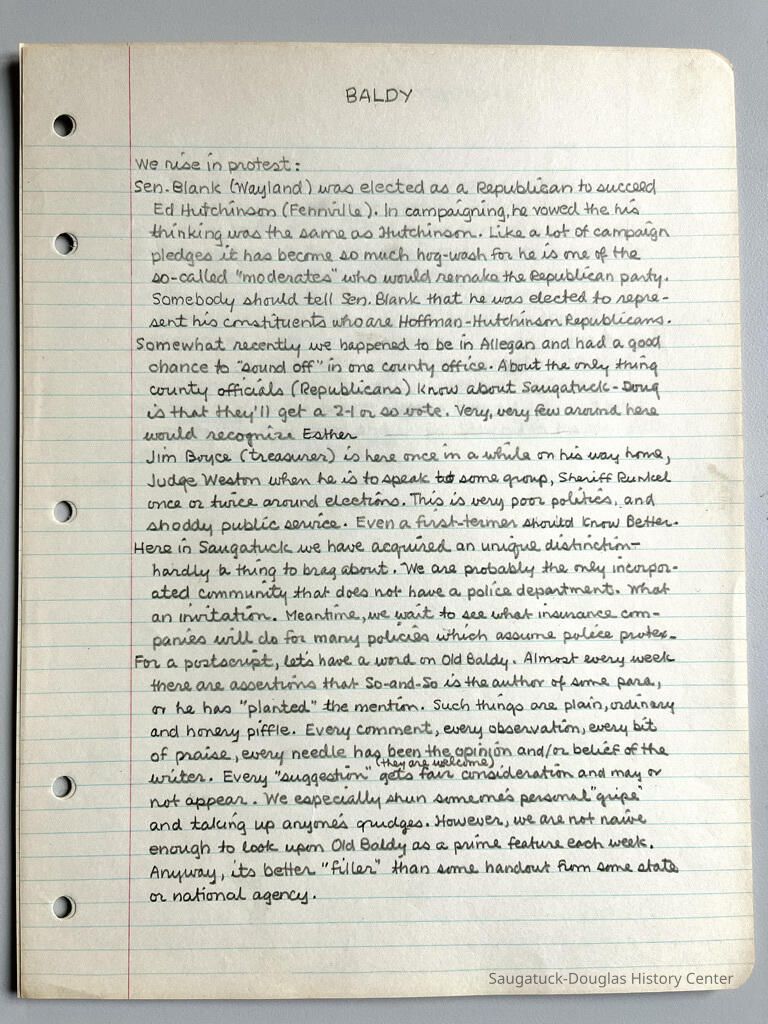 BALDY
We rise in protest:
Sen. Blank (Wayland) was elected as a Republican to succeed
Ed Hutchinson (Fennville). In campaigning, he vowed the his
thinking was the same as Hutchinson. Like a lot of campaign
pledges it has become so much hog-wash for he is one of the
so-called "moderates" who would remake the Republican party.
Somebody should tell Sen. Blank that he was elected to repre-
sent his constituents who are Hoffman-Hutchinson Republicans.
Somewhat recently we happened to be in Allegan and had a good
chance to "sound off" in one county office. About the only thing
county officials (Republicans) know about Saugatuck-Doug
is that they'll get a 2-1 or so vote. Very, very few around here
would recognize Esther
Jim Boyce (treasurer) is here once in a while on his way home,
Judge Weston when he is to speak to some group, Sheriff Runkel
once or twice around elections. This is very poor politics, and
shoddy public service. Even a first-termer should know better.
Here in Saugatuck we have acquired an unique distinction-
hardly a thing to brag about. We are probably the only incorpor-
ated community that does not have a police department. What
an invitation. Meantime, we wait to see what insurance com-
panies will do for many policies which assume police protex-
For a postscript, let's have a word on Old Baldy. Almost every week
there are assertions that So-and-So is the author of some para,
or he has "planted" the mention. Such things are plain, ordinary
and honery piffle. Every comment, every observation, every bit
of praise, every needle has been the opinion and/or belief of the
(they are welcome)
writer. Every "suggestion" gets fair consideration and may or
not appear. We especially shun someone's personal "gripe"
and taking up anyone's grudges. However, we are not naive
enough to look upon Old Baldy as a prime feature each week.
Anyway, its better "filler" than some handout from some state
or national agency.
Saugatuck-Douglas History Center